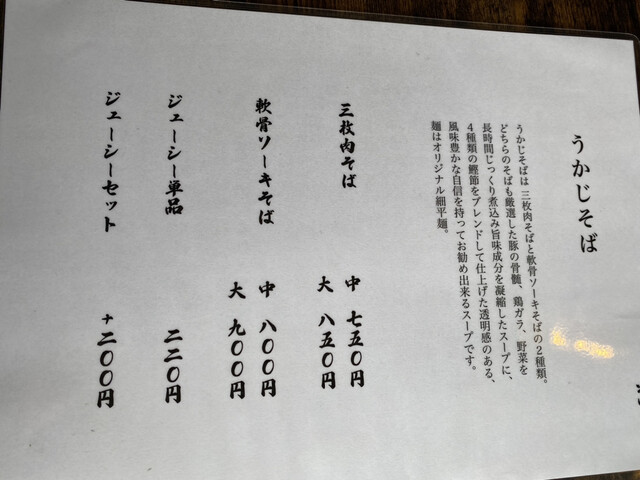 うかじそば
うかじそばは三枚肉そばと軟骨ソーキそばの2種類。
どちらのそばも厳選した豚の骨髄、鶏ガラ、野菜を
長時間じっくり煮込み旨味成分を凝縮したスープに、
4種類の鰹節をブレンドして仕上げた透明感のある、
風味豊かな自信を持ってお勧め出来るスープです。
麺はオリジナル細平麺。
三枚肉そば
中 七五〇円
大 八五〇円
軟骨ソーキそば
中 八〇〇円
大 九〇〇円
ジューシー単品
二二〇円
ジューシーセット
+二〇〇円